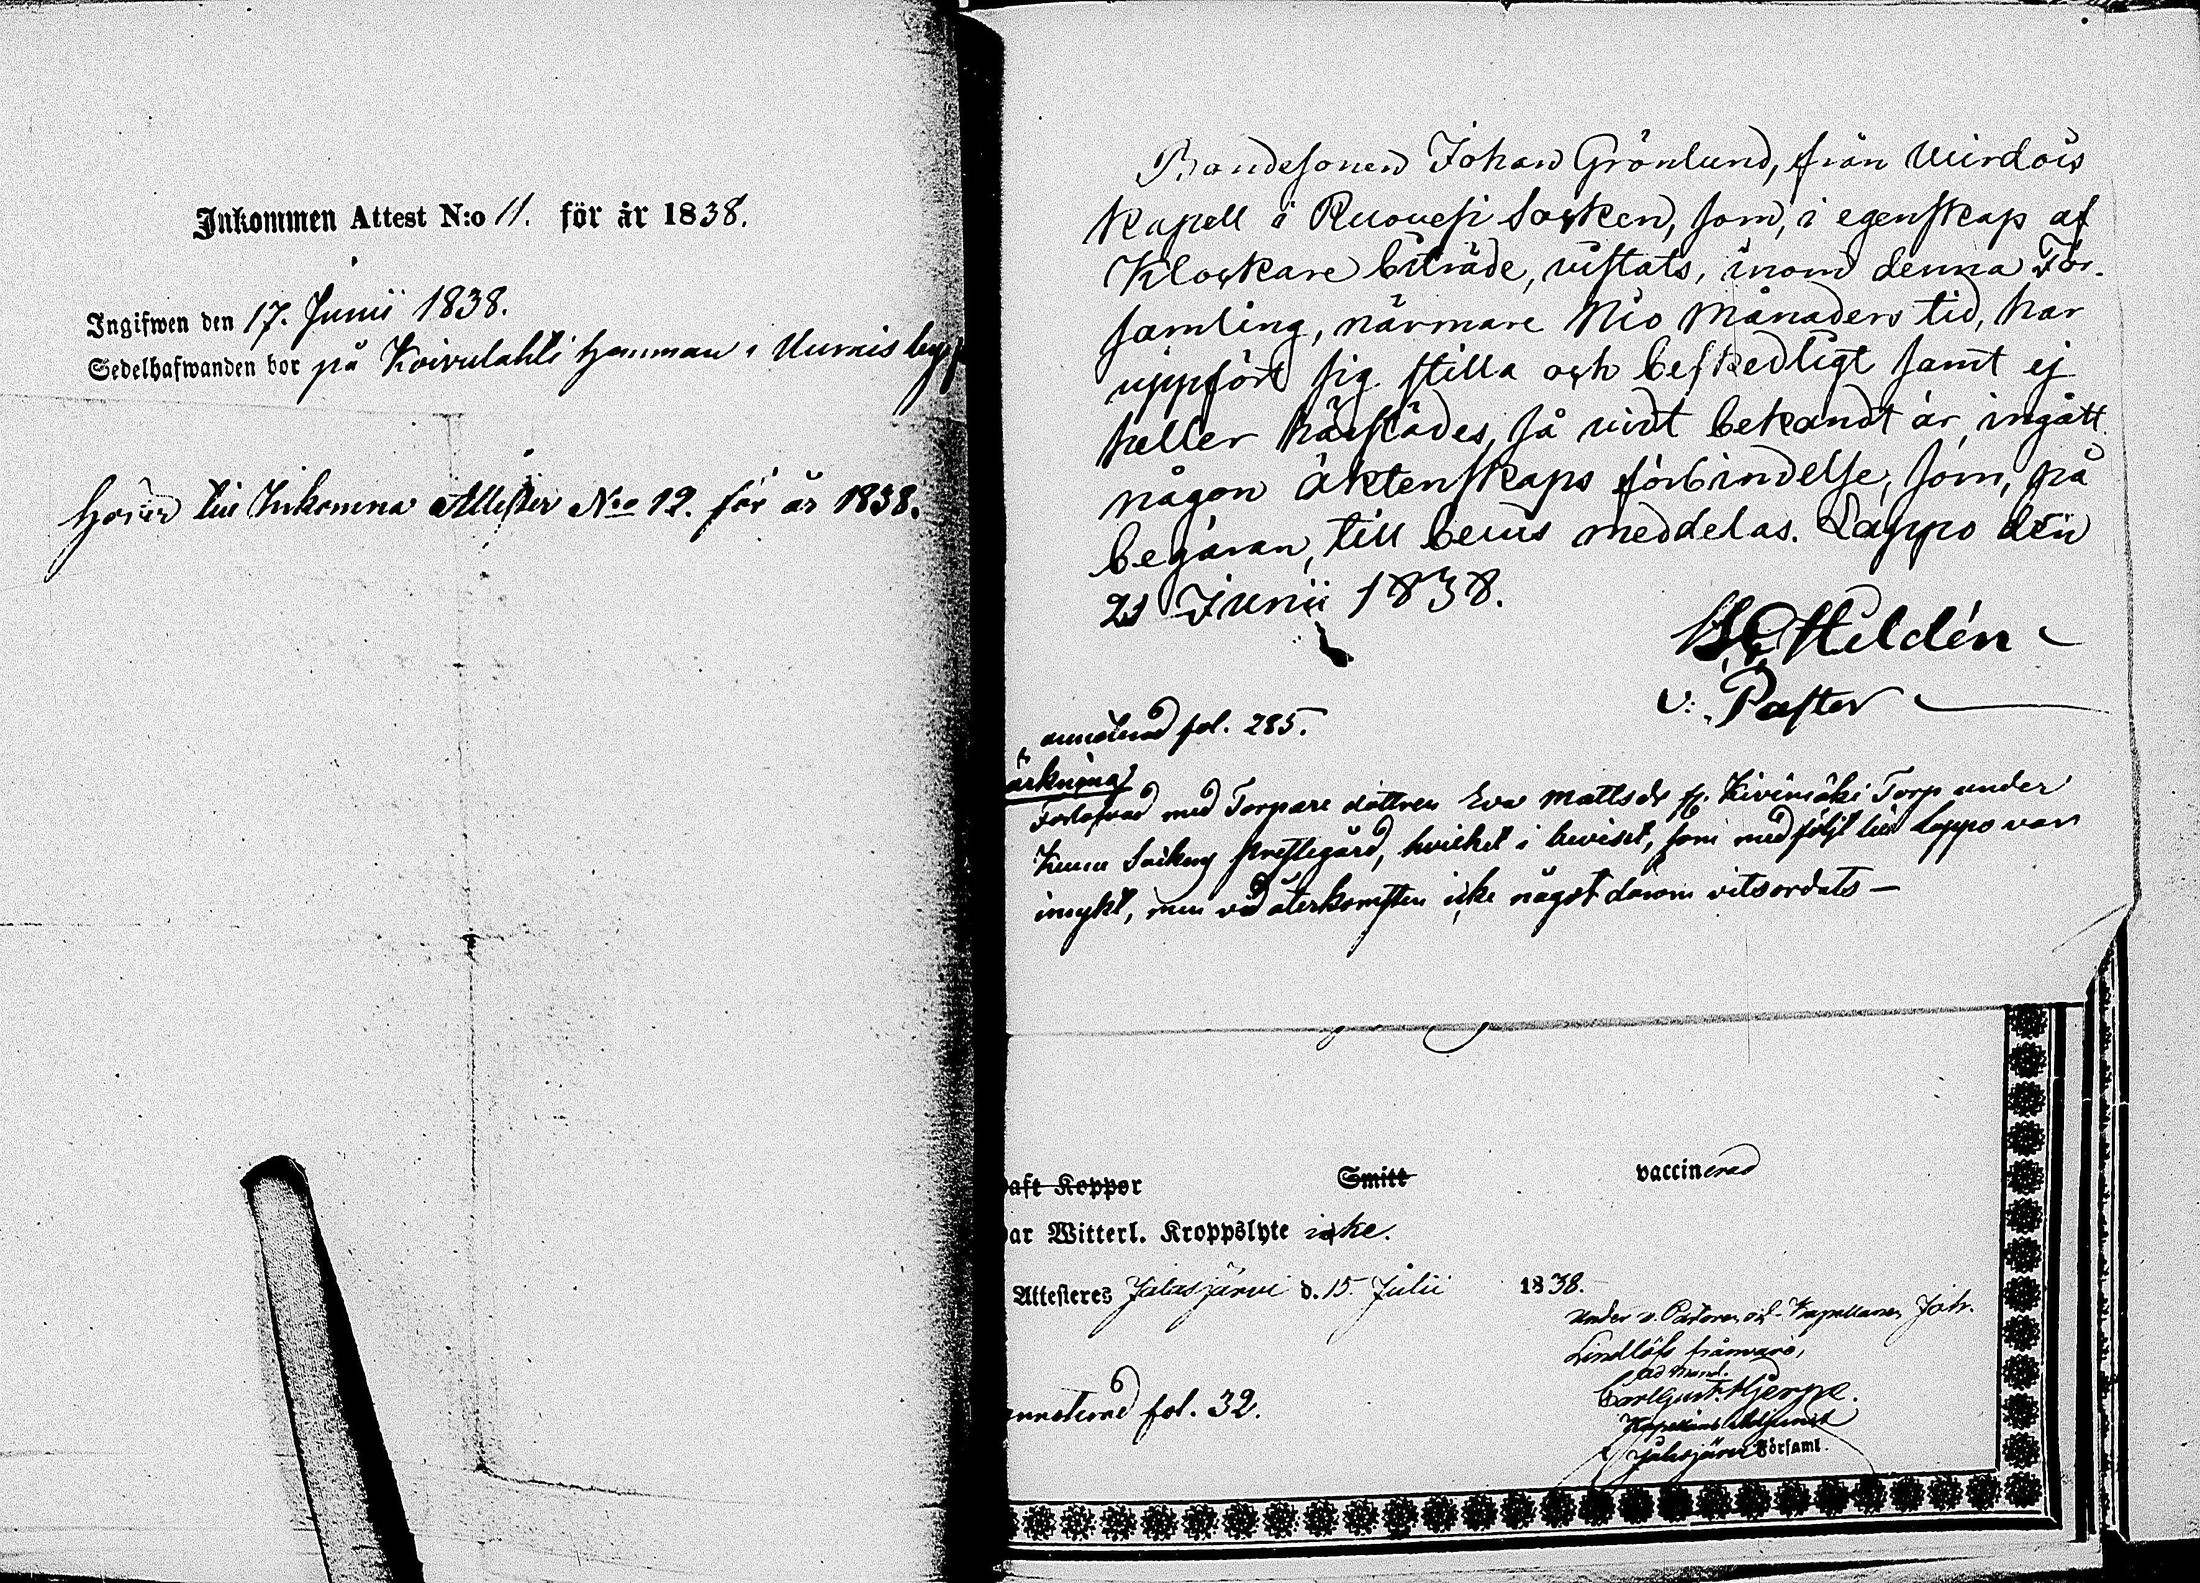 Inkommen Attest N:o 11. för år 1838.
Ingifwen den 17. Junii 1838.
Sedelhafwanden bor på Koivulahti hemman i
hörer till Inkomna Attester No 12. för år 1838.
Bondesonen Johan Grönlund, från Virdois
Kapell i Ruovesi Socken, som, i egenskap af
Klockare biträde, vistats, inom denna För-
samling, närmare Nio Månaders tid, har
uppfört sig stilla och beskedligt samt ej
heller härstädes, så vidt bekandt är, ingått
någon äktenskaps förbindelse, som, på
begäran, till bevis meddelas. Lappo den
21 Junii 1838.
Heldén
v: Pastor
annoterad fol. 285.
ärkning
Torpare dottren Eva Mattsdr fr. Kivimäki Torp under
Prestegård, hvilket i beviset, som medföljt till Lappo var
inrykt, men vid återkomsten icke något därom vitsordats —
haft Koppor Smitt vaccinerad
har Witterl. Kroppslyte icke.
Attesteres Jalasjärvi d. 15. Julii 1838.
Under v. Pastoren och Kapellanen Joh.
Lindlöfs frånvaro,
ad mand.
Carl Gust. Hjerpe.
Kapellans Adjunct
i Jalasjärvi Församl.
annoterad fol. 32.